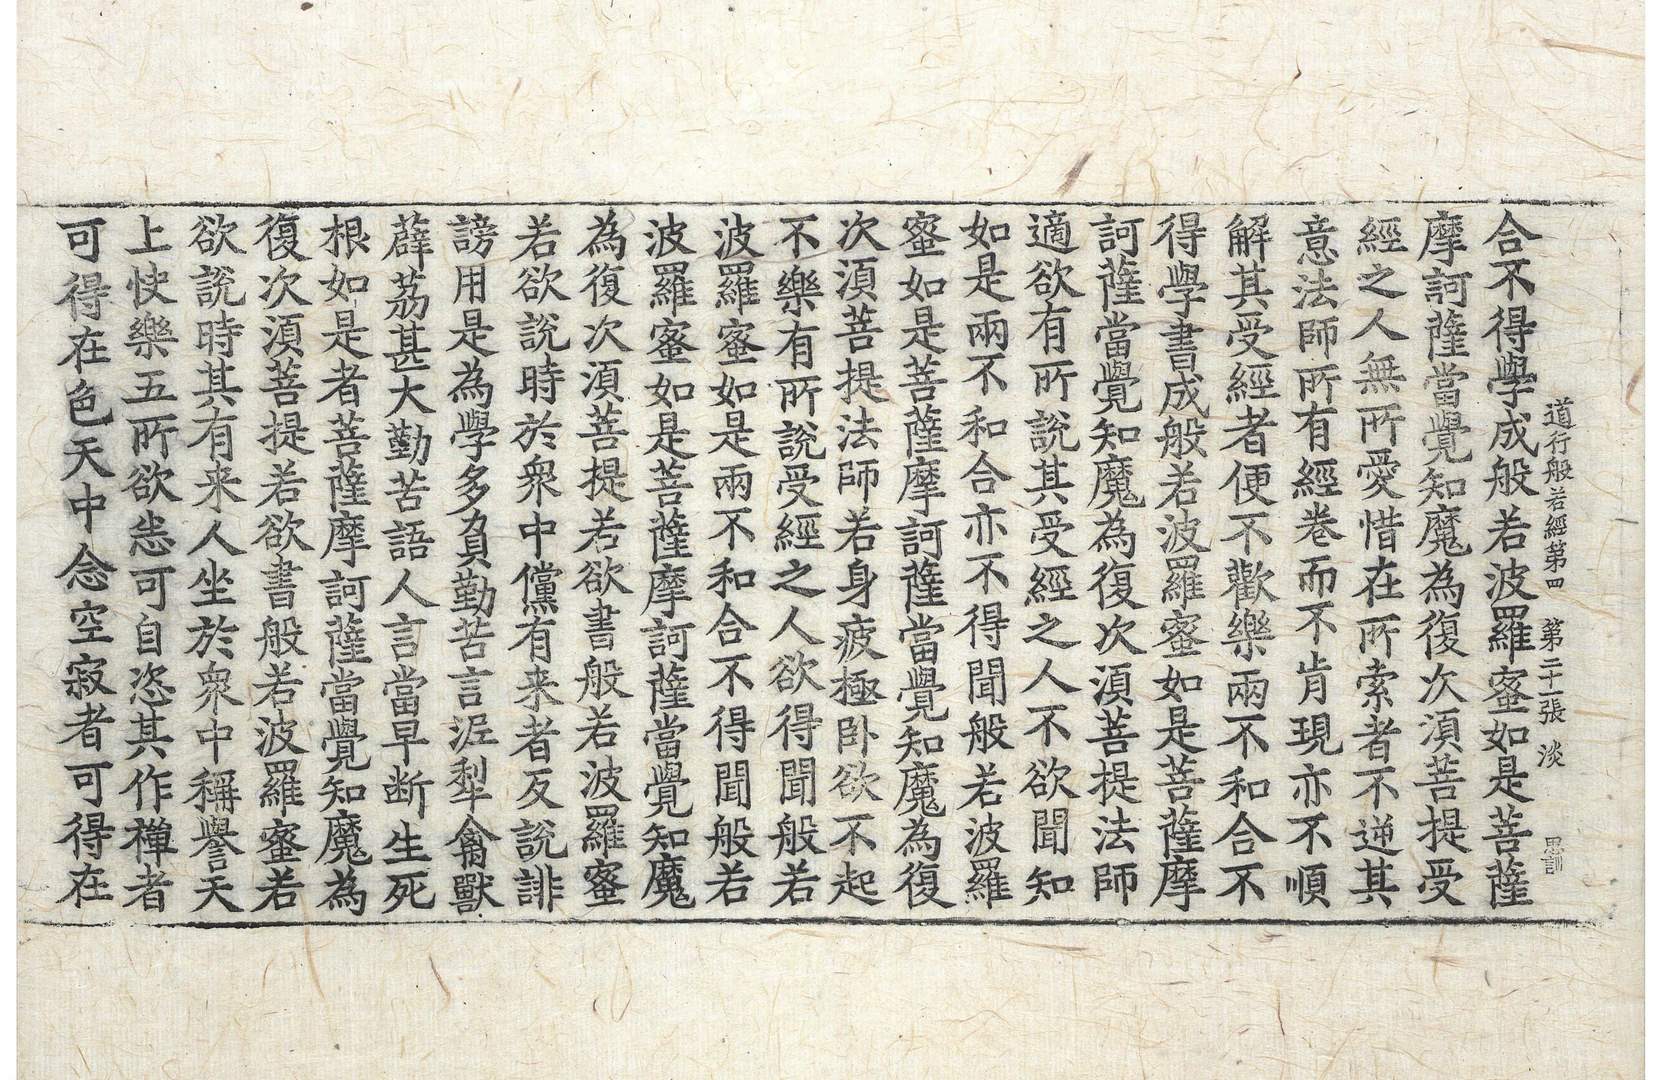 道行般若經第四 第二十一張 淡 思訓
合不得學成般若波羅蜜如是菩薩
摩訶薩當覺知魔為復次湏菩提受
經之人無所愛惜在所索者不逆其
意法師所有經卷而不肯現亦不順
解其受經者便不歡樂兩不和合不
得學書成般若波羅蜜如是菩薩摩
訶薩當覺知魔為復次湏菩提法師
適欲有所說其受經之人不欲聞知
如是兩不和合亦不得聞般若波羅
蜜如是菩薩摩訶薩當覺知魔為復
次湏菩提法師若身疲極卧欲不起
不樂有所說受經之人欲得聞般若
波羅蜜如是兩不和合不得聞般若
波羅蜜如是菩薩摩訶薩當覺知魔
為復次湏菩提若欲書般若波羅蜜
若欲說時於衆中儻有来者反說誹
謗用是為學多負勤苦言泥犁禽獸
薜荔甚大勤苦語人言當早断生死
根如是者菩薩摩訶薩當覺知魔為
復次湏菩提若欲書般若波羅蜜若
欲說時其有来人坐於衆中稱譽天
上快樂五所欲悉可自恣其作禅者
可得在色天中念空寂者可得在